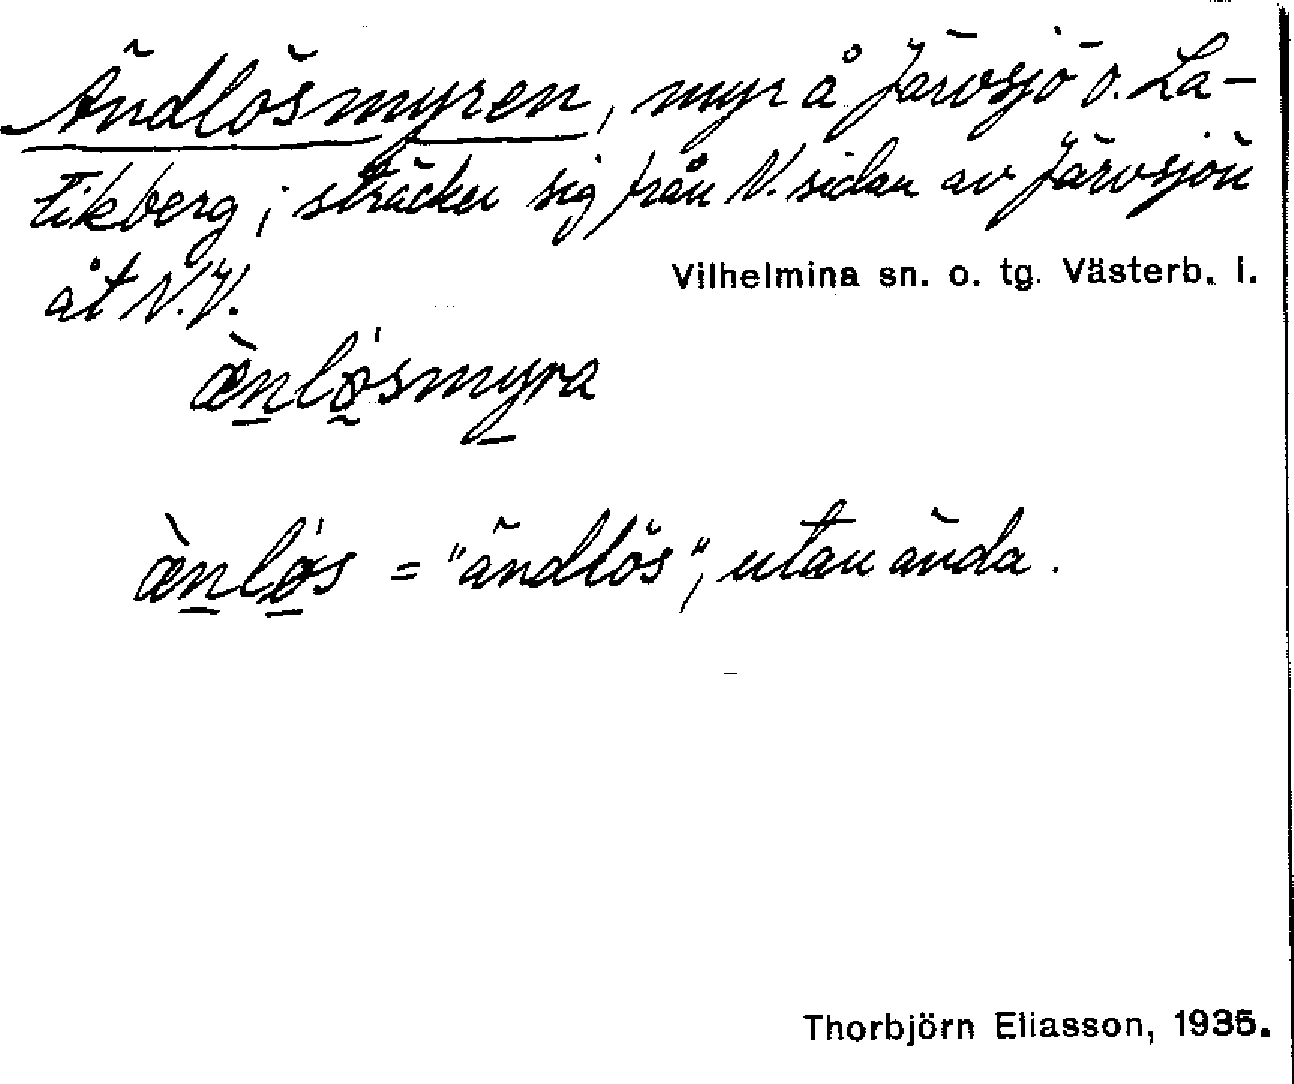 Ändlösmyren, myr å Järvsjö o. La-
tikberg; sträcker sig från N. sidan av Järvsjön
åt N.V.
Vilhelmina sn. o. tg. Västerb. l.
æ̀nlø̀smyra
æ̀nlø̀s = "ändlös", utan ända.
Thorbjörn Eliasson, 1935.